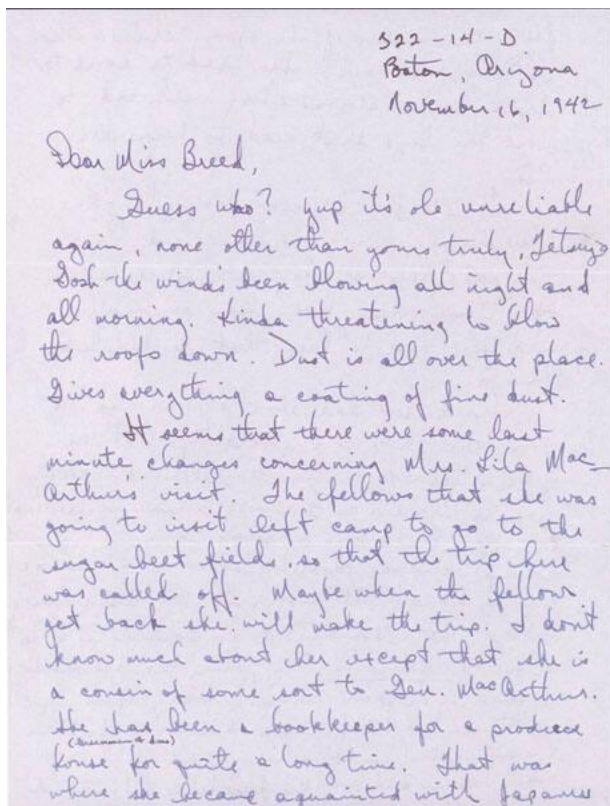 322-14-D
Poston, Arizona
November 16, 1942
Dear Miss Breed,
Guess who? Yup it's ole unreliable
again, none other than yours truly, Tetsuzo
Gosh the wind's been blowing all night and
all morning. Kinda threatening to blow
the roofs down. Dust is all over the place.
Gives everything a coating of fine dust.
It seems that there were some last
minute changes concerning Mrs. Lila Mac-
Arthur's visit. The fellows that she was
going to visit left camp to go to the
sugar beet fields, so that the trip here
was called off. Maybe when the fellows
get back she will make the trip. I don't
know much about her except that she is
a cousin of some sort to Gen. MacArthur.
She has been a bookkeeper for a produce
house for quite a long time. That was
where she became aquainted with Japanese